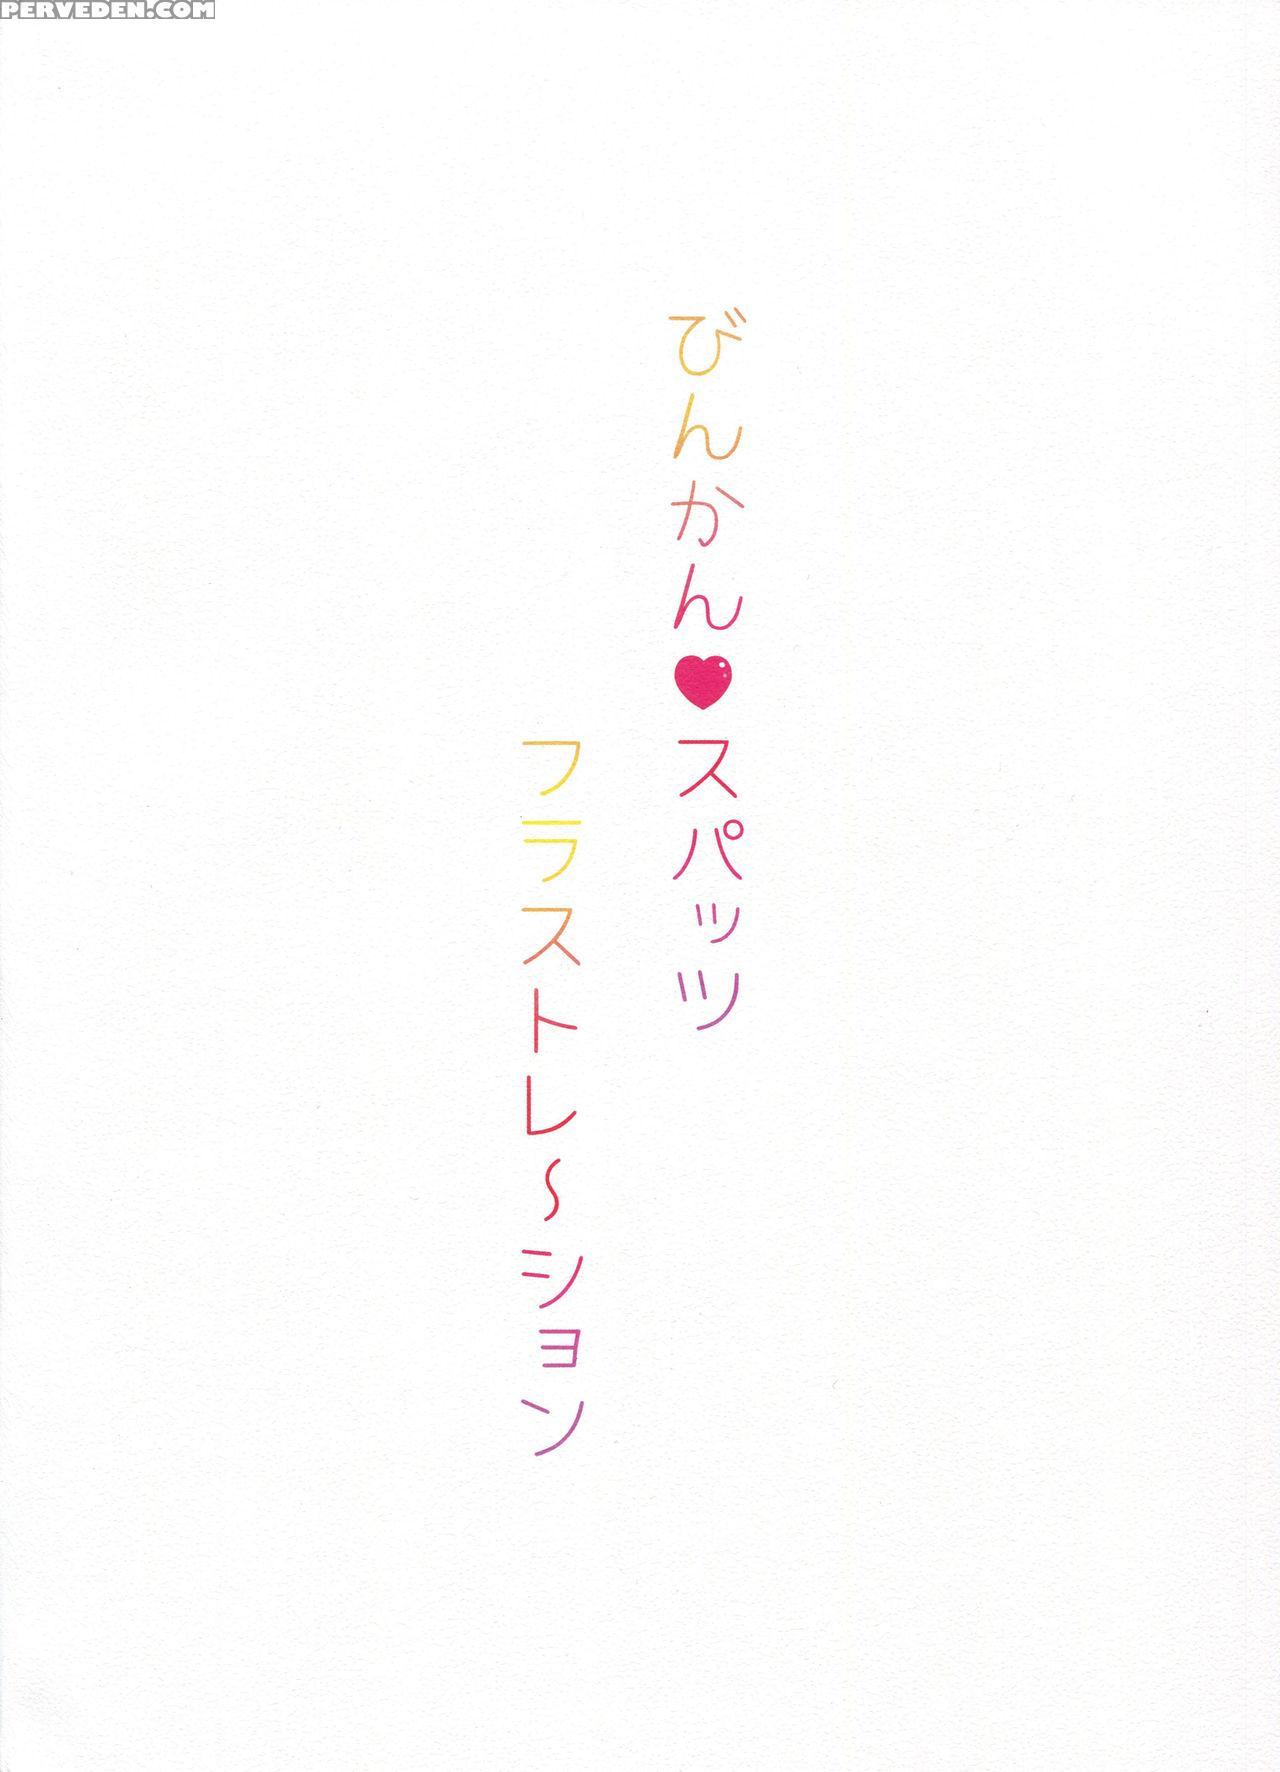 PERVEDEN.COM
びんかん♥スパッツ
フラストレ〜ション